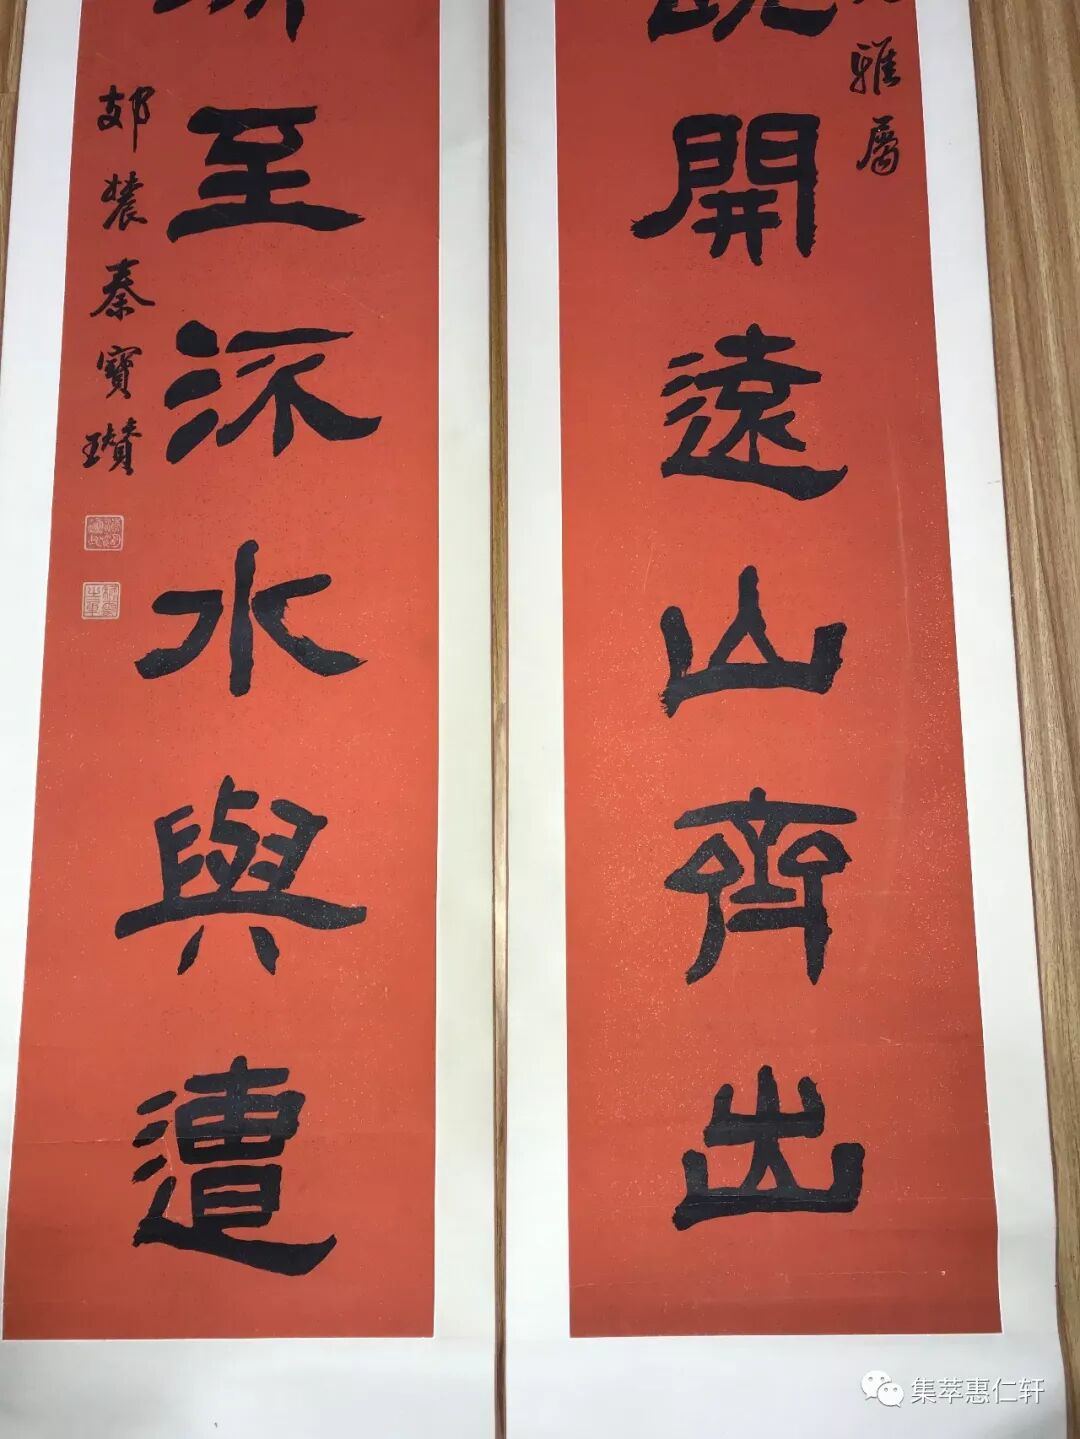 雅屬
開遠山齊出
至流水與遭
郂農秦寶瓚
集萃惠仁轩